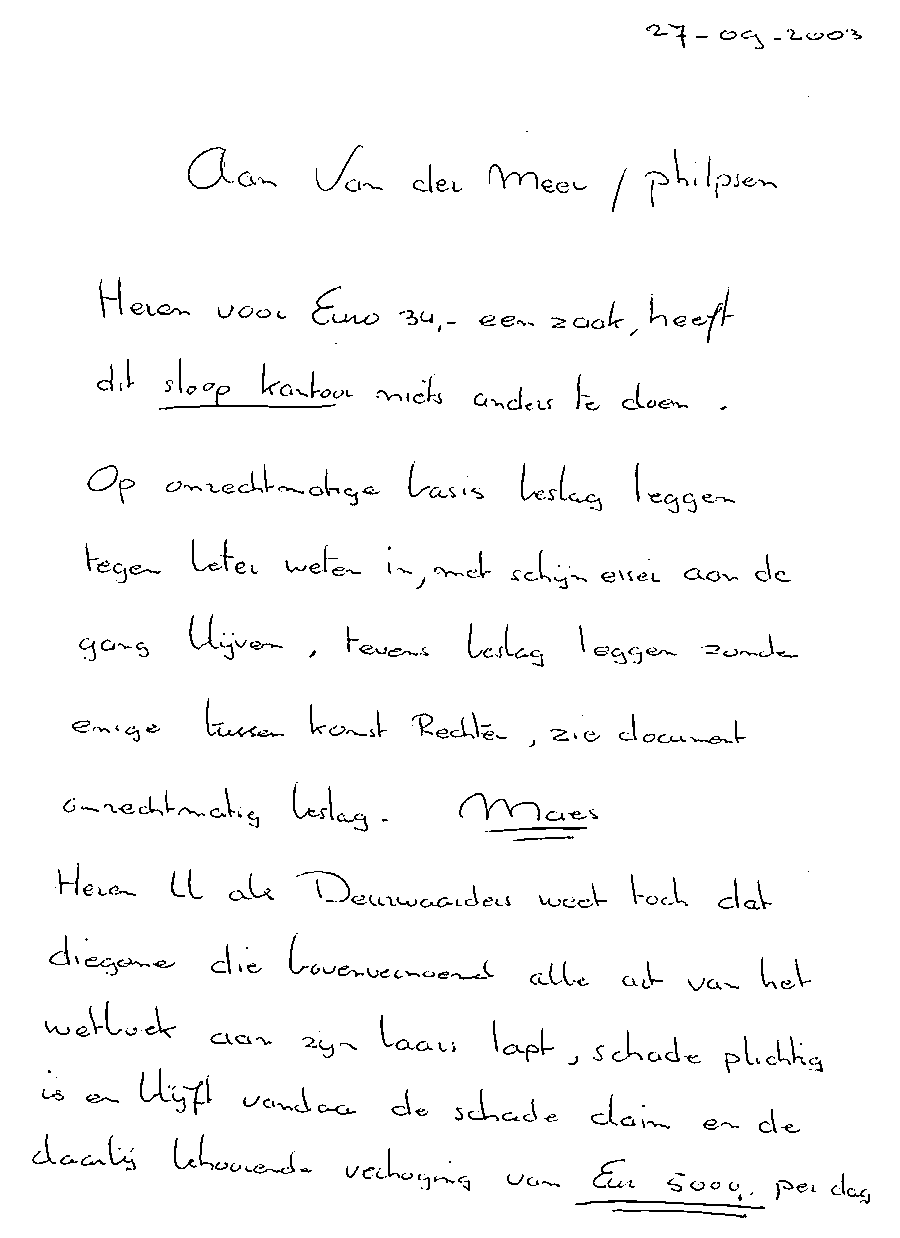 27-09-2003
Aan Van der Meer / philpsen
Heren voor Euro 34,- een zaak, heeft
dit sloop kantoor niets anders te doen .
Op onrechtmatige basis beslag leggen
tegen beter weten in, met schijn eiser aan de
gang blijven , tevens beslag leggen zonder
enige tussen komst Rechter , zie document
onrechtmatig beslag. Maes
Heren U als Deurwaarders weet toch dat
diegene die bovenvernoemd alle art van het
wetboek aan zijn laars lapt , schade plichtig
is en blijft vandaar de schade claim en de
daarbij behorende verhoging van Eur 5000,. per dag